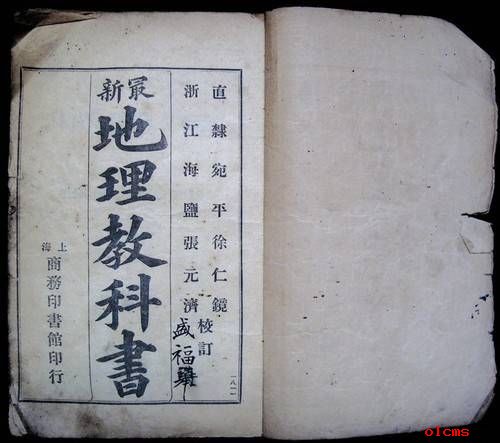 直隸宛平徐仁鏡
浙江海鹽張元濟
校訂
盛福
最新
地理教科書
上海
商務印書館印行
olcms